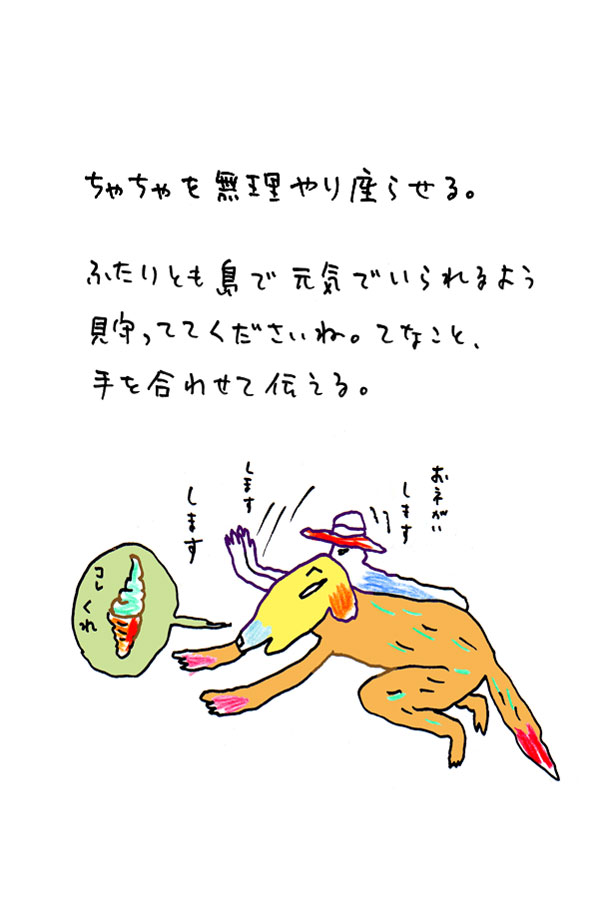 ちゃちゃを無理やり座らせる。
ふたりとも島で元気でいられるよう
見守っててくださいね。てなこと、
手を合わせて伝える。
おネがい
します
します
します
コレ
くれ